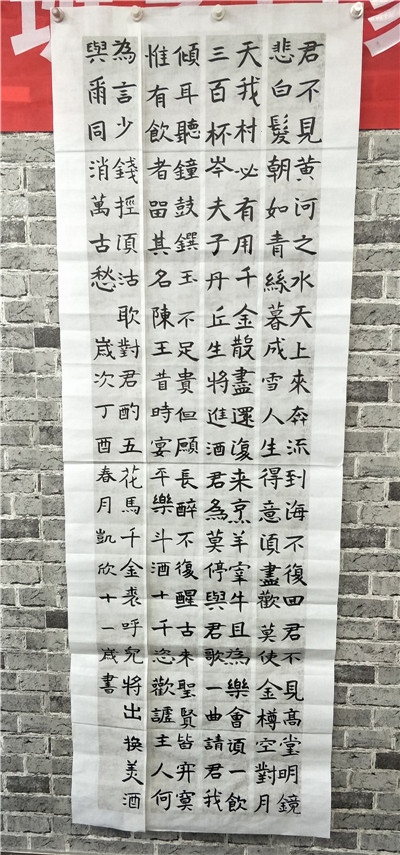 君不見黃河之水天上來奔流到海不復回君不見高堂明鏡
悲白髮朝如青絲暮成雪人生得意須盡歡莫使金樽空對月
天我村必有用千金散盡還復来烹羊宰牛且為樂會須一飲
三百杯岑夫子丹丘生將進酒君為莫停與君歌一曲請君我
傾耳聽鐘鼓饌玉不足貴但願長醉不復醒古来聖賢皆寞
惟有飲者留其名陳王昔時宴平樂斗酒十千恣歡謔主人何
為言少錢徑須沽耴對君酌五花馬千金裘呼兒將出換美酒
與爾同消萬古愁 歲次丁酉春月凱欣十一歲書